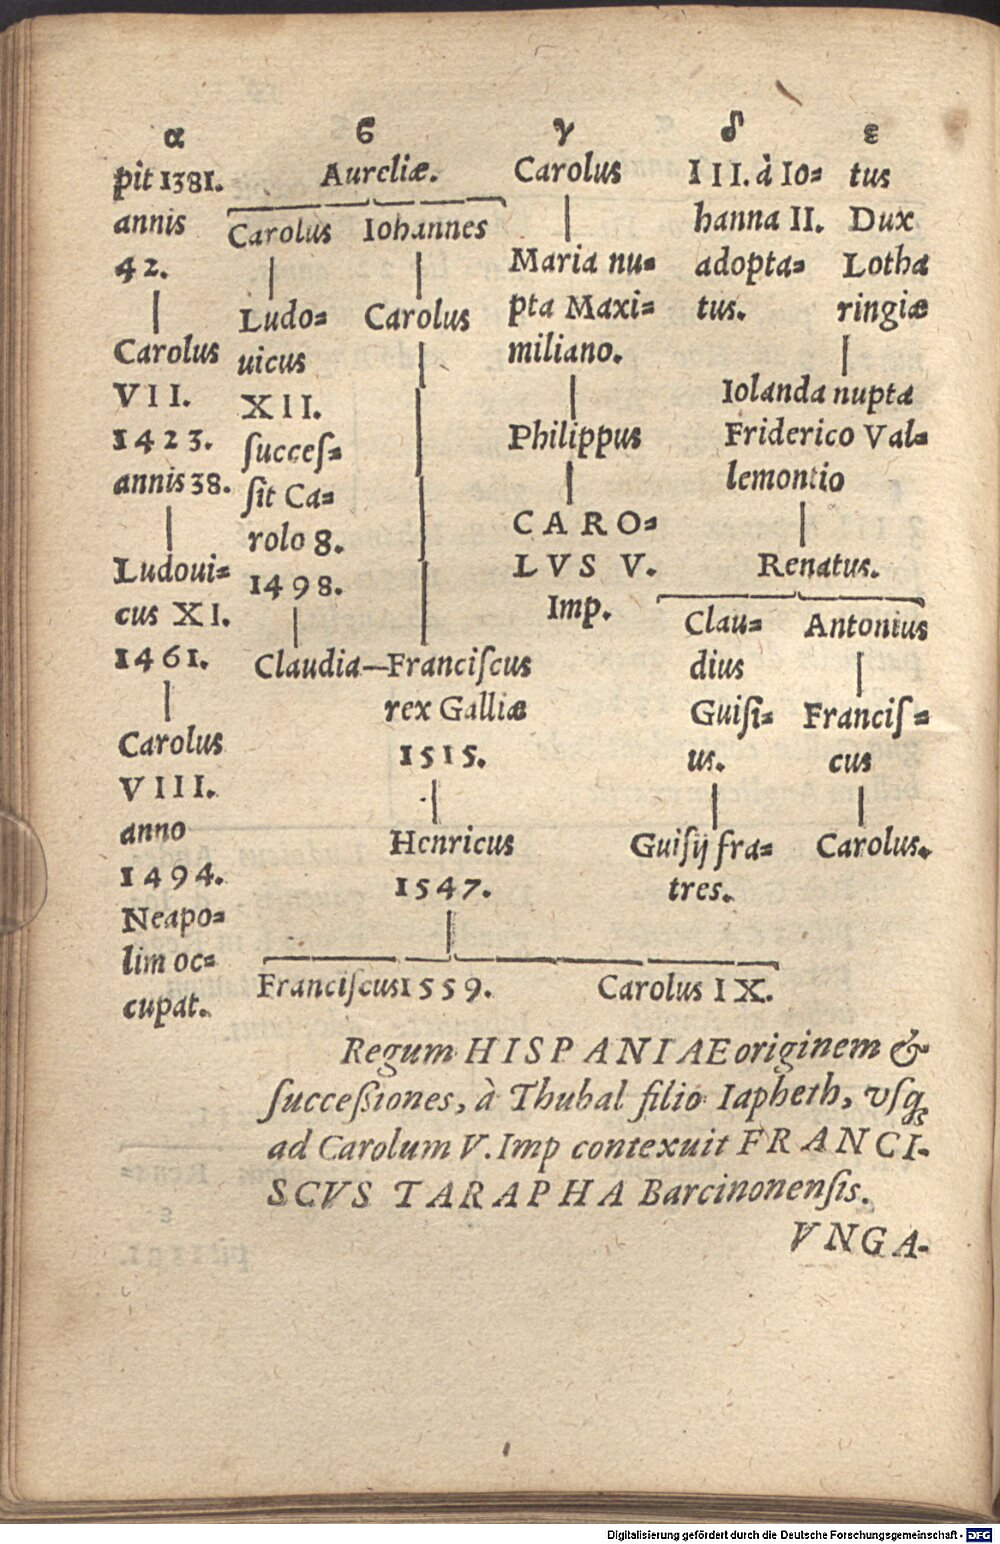 α ϐ γ δ ε
pit 1381.
annis
42.
Carolus
VII.
1423.
annis 38.
Ludoui=
cus XI.
1461.
Carolus
VIII.
anno
1494.
Neapo=
lim oc=
cupat.
Aureliæ.
Carolus Iohannes
Ludo=
uicus
XII.
ſucceſ=
ſit Ca=
rolo 8.
1498.
Carolus
Claudia—Franciſcus
rex Galliæ
1515.
Henricus
1547.
Franciſcus 1559. Carolus IX.
Carolus
Maria nu=
pta Maxi=
miliano.
Philippus
CARO=
LVS V.
Imp.
III. à Io=
hanna II.
adopta=
tus.
tus
Dux
Lotha
ringiæ
Iolanda nupta
Friderico Val=
lemontio
Renatus.
Clau=
dius
Guiſi=
us.
Guiſij fra=
tres.
Antonius
Franciſ=
cus
Carolus.
Regum HISPANIAE originem &
ſucceſsiones, à Thubal filio Iapheth, vſq;
ad Carolum V. Imp contexuit FRANCI-
SCVS TARAPHA Barcinonenſis.
VNGA-
Digitalisierung gefördert durch die Deutsche Forschungsgemeinschaft - DFG